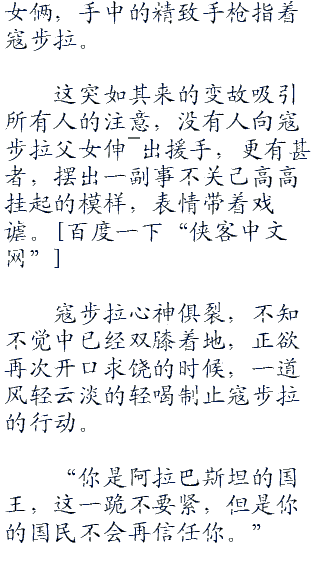 女俩，手中的精致手枪指着
寇步拉。
这突如其来的变故吸引
所有人的注意，没有人向寇
步拉父女伸¯出援手，更有甚
者，摆出一副事不关己高高
挂起的模样，表情带着戏
谑。[百度一下“侠客中文
网”]
寇步拉心神俱裂，不知
不觉中已经双膝着地，正欲
再次开口求饶的时候，一道
风轻云淡的轻喝制止寇步拉
的行动。
“你是阿拉巴斯坦的国
王，这一跪不要紧，但是你
的国民不会再信任你。”